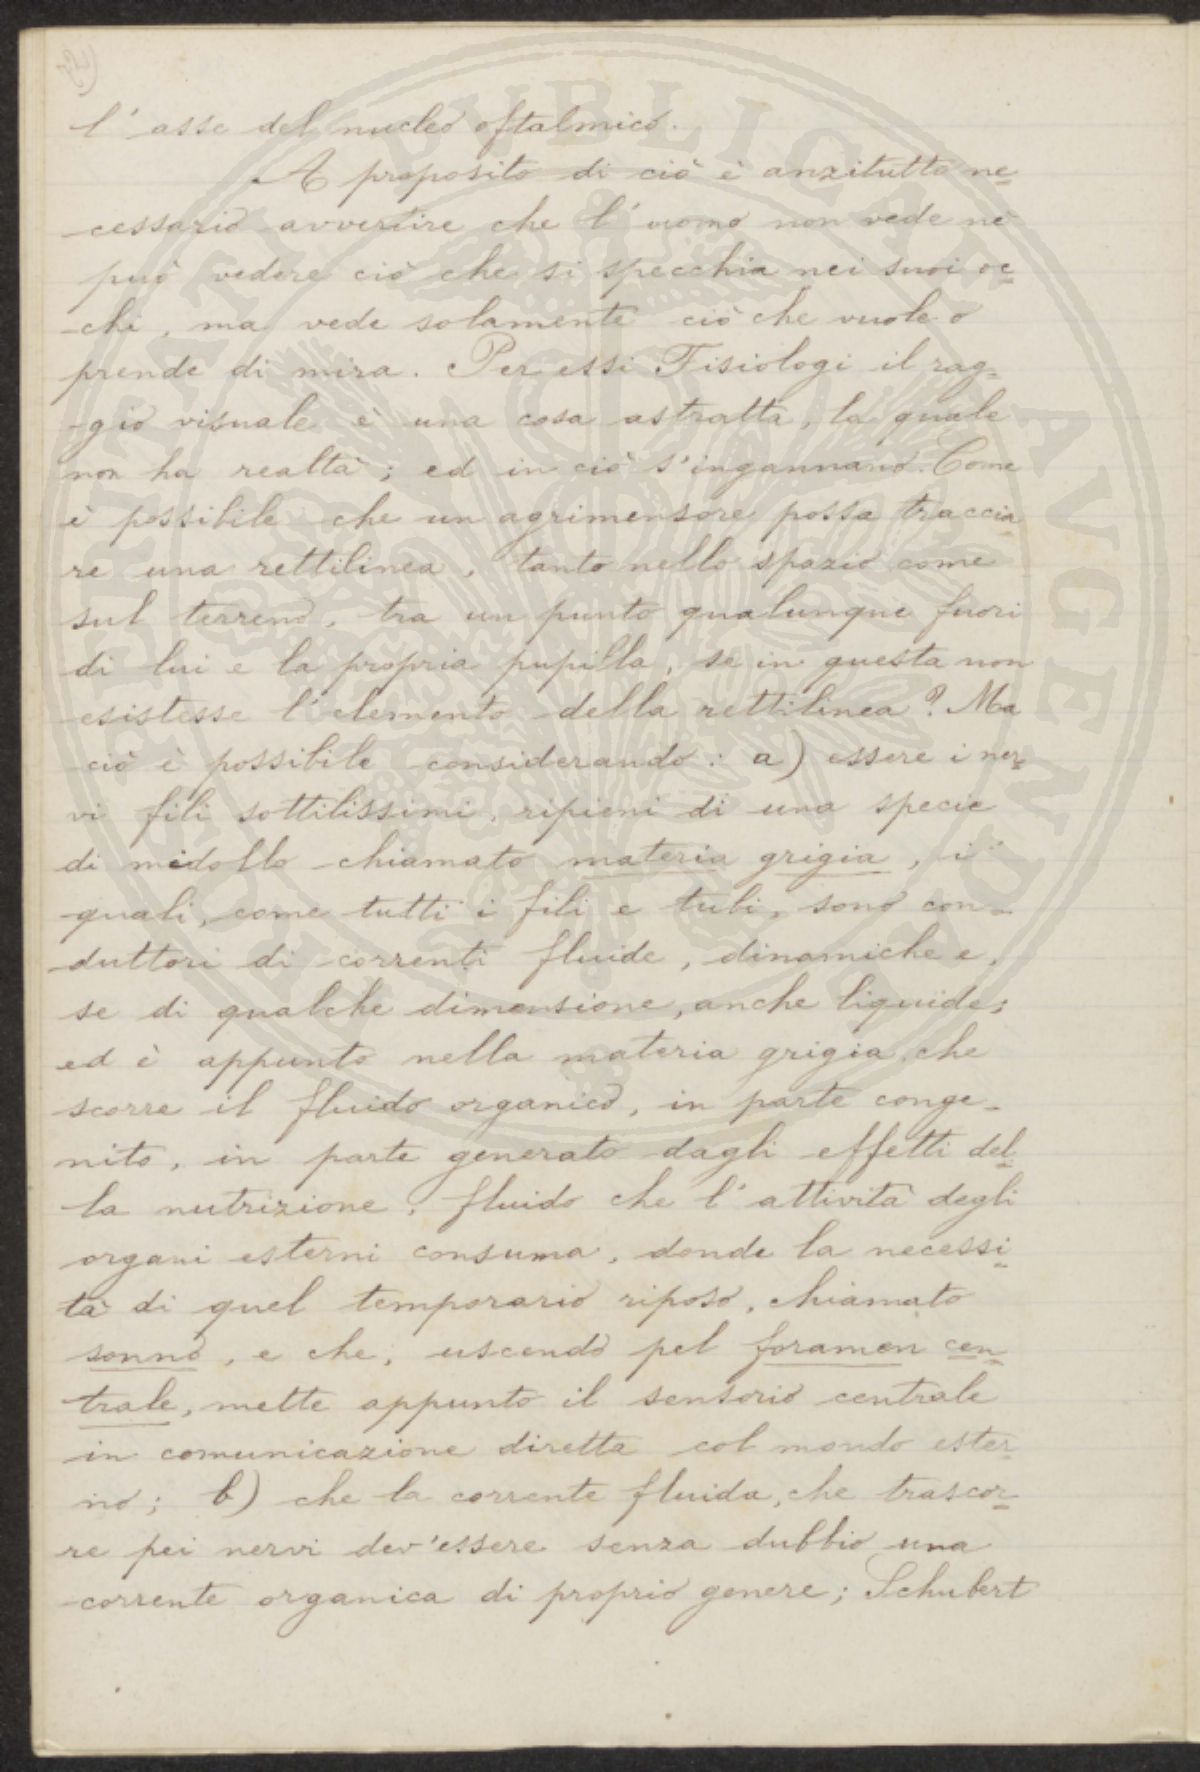 l'asse del nucleo oftalmico.
A proposito di ciò è anzitutto ne-
cessario avvertire che l'uomo non vede nè
può vedere ciò che si specchia nei suoi oc-
chi, ma vede solamente ciò che vuole o
prende di mira. Per essi Fisiologi il rag-
gio visuale è una cosa astratta, la quale
non ha realtà; ed in ciò s'ingannano. Come
è possibile che un agrimensore possa traccia
re una rettilinea, tanto nello spazio come
sul terreno, tra un punto qualunque fuori
di lui e la propria pupilla, se in questa non
esistesse l'elemento della rettilinea? Ma
ciò è possibile considerando: a) essere i ner-
vi fili sottilissimi, ripieni di una specie
di midollo chiamato materia grigia, i
quali, come tutti i fili e tubi, sono con-
duttori di correnti fluide, dinamiche e,
se di qualche dimensione, anche liquide;
ed è appunto nella materia grigia, che
scorre il fluido organico, in parte conge-
nito, in parte generato dagli effetti del-
la nutrizione, fluido che l'attività degli
organi esterni consuma, donde la necessi-
tà di quel temporario riposo, chiamato
sonno, e che, uscendo pel foramen cen-
trale, mette appunto il sensorio centrale
in comunicazione diretta col mondo ester-
no; b) che la corrente fluida, che trascor-
re pei nervi dev'essere senza dubbio una
corrente organica di proprio genere; Schubert